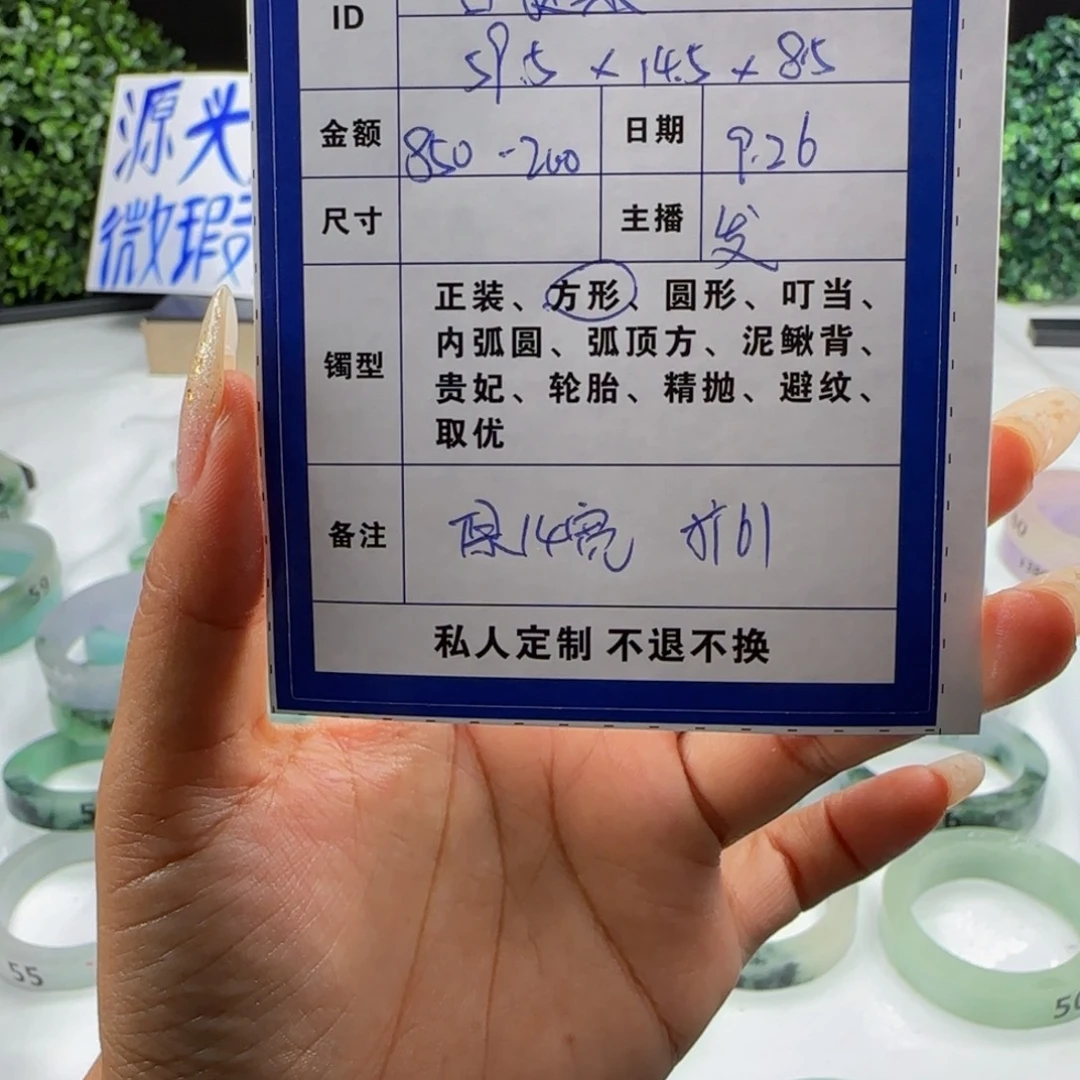 源头
微瑕
ID
59.5 × 14.5 × 8.5
金额 850 -200 日期 9.26
尺寸 主播 发
镯型
正装、方形、圆形、叮当、
内弧圆、弧顶方、泥鳅背、
贵妃、轮胎、精抛、避纹、
取优
备注 保14宽 扩61
私人定制 不退不换
59
55
50